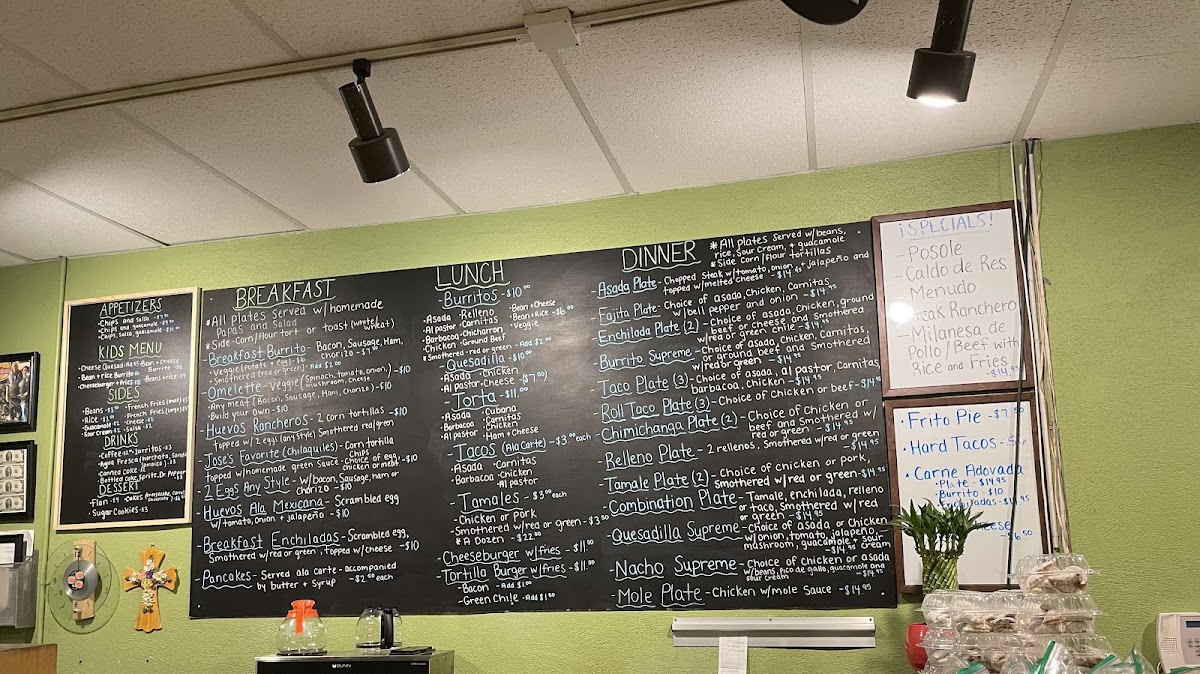 APPETIZERS
·Chips and salsa
·Chips and guacamole
·Chips, salsa, guacamole
KIDS MENU
·Cheese Quesadilla ·Bean + Cheese
·Bean + rice Burrito Burrito
·Cheeseburger + fries ·Beans + rice
SIDES
·Beans ·French Fries (small)
·Rice ·French Fries (large)
·Guacamole ·Cheese
·Sour Cream ·Salsa
DRINKS
·Coffee ·Jarritos -$3
·Agua Fresca (horchata,
Jamaica)
·Canned coke
·Bottled coke, Sprite, Dr. Pepper
DESSERT
·Flan -$4 ·Cakes
·Sugar Cookies -$3
BREAKFAST
*All plates served w/homemade
Papas and Salad
*Side-Corn/flour tort or toast (white/
wheat)
-Breakfast Burrito- Bacon, Sausage, Ham,
·Veggie (potato + egg) -$6 chorizo -$7.50
·Smothered (red or green)
-Omelette-Veggie (Spinach, tomato, onion,
mushroom, cheese) -$10
·Any meat (Bacon, Sausage, Ham, Chorizo) -$10
·Build your own -$10
-Huevos Rancheros- 2 corn tortillas -$10
topped w/ 2 eggs (any style) Smothered red/green
-Jose's Favorite (Chilaquiles)- Corn tortilla
Chips
topped w/homemade green Sauce choice of egg,
chicken or meat -$10
-2 Eggs Any Style - W/bacon, Sausage, ham or
chorizo -$10
-Huevos Ala Mexicana- Scrambled egg
w/tomato, onion + jalapeño -$10
-Breakfast Enchiladas-Scrambled egg,
Smothered w/red or green, topped w/cheese -$10
-Pancakes- Served ala carte - accompanied
by butter + Syrup -$2.50 each
LUNCH
-Burritos -$10.00
·Asada ·Relleno ·Bean + Cheese
·Al pastor ·Carnitas ·Bean + Rice -$6.00
·Barbacoa ·Chicharron ·Veggie
·Chicken ·Ground Beef
*Smothered -red or green -Add $2.00
-Quesadilla -$10.00
·Asada ·Chicken
·Al pastor ·Cheese -($7.00)
-Torta -$11.00
·Asada ·Cubana
·Barbacoa ·Carnitas
·Al pastor ·Chicken
·Ham + Cheese
-Tacos (Ala Carte) -$3.00 each
·Asada ·Carnitas
·Barbacoa ·Chicken
·Al pastor
-Tamales -$3.00 each
-Chicken or Pork
-Smothered w/red or green -$3.50
*A Dozen -$22.00
-Cheeseburger w/fries -$11.00
-Tortilla Burger w/fries -$11.00
-Bacon -Add $1.00
-Green Chile -Add $1.00
DINNER
*All plates served w/beans,
rice, Sour Cream, + guacamole
*Side Corn/flour tortillas
-Asada Plate- Chopped Steak w/tomato, onion, + jalapeño and
topped w/melted cheese -$14.95
-Fajita Plate- Choice of asada, Chicken, Carnitas
w/bell pepper and onion -$14.95
-Enchilada Plate (2) - Choice of asada, chicken, ground
beef or cheese and Smothered
w/red or green chile -$14.95
-Burrito Supreme-Choice of asada, chicken, Carnitas,
or ground beef and Smothered
w/red or green -$14.95
-Taco Plate (3)-Choice of asada, al pastor, Carnitas,
barbacoa, chicken -$14.95
-Roll Taco Plate (3)- Choice of Chicken or beef -$14.95
-Chimichanga Plate (2) - Choice of Chicken or
beef and Smothered w/
red or green -$14.95
-Relleno Plate - 2 rellenos, Smothered w/red or green
-$14.95
-Tamale Plate (2)- Choice of chicken or pork,
Smothered w/red or green -$14.95
-Combination Plate- Tamale, enchilada, relleno
or taco, Smothered w/red
or green -$14.95
-Quesadilla Supreme-choice of asada or Chicken
w/onion, tomato, jalapeño,
mushroom, guacamole + sour
cream -$14.95
-Nacho Supreme- Choice of chicken or asada
w/beans, pico de gallo, guacamole and
sour cream -$14.95
-Mole Plate-Chicken w/mole Sauce -$14.95
¡SPECIALS!
-Posole
-Caldo de Res
-Menudo
Steak Ranchero
-Milanesa de
Pollo/Beef with
Rice and Fries
-$14.95
·Frito Pie -$7.50
·Hard Tacos
·Carne Adovada
·Plate -$14.95
·Burrito -$10
·Enchiladas -$14.95
-$6.50
BUNN